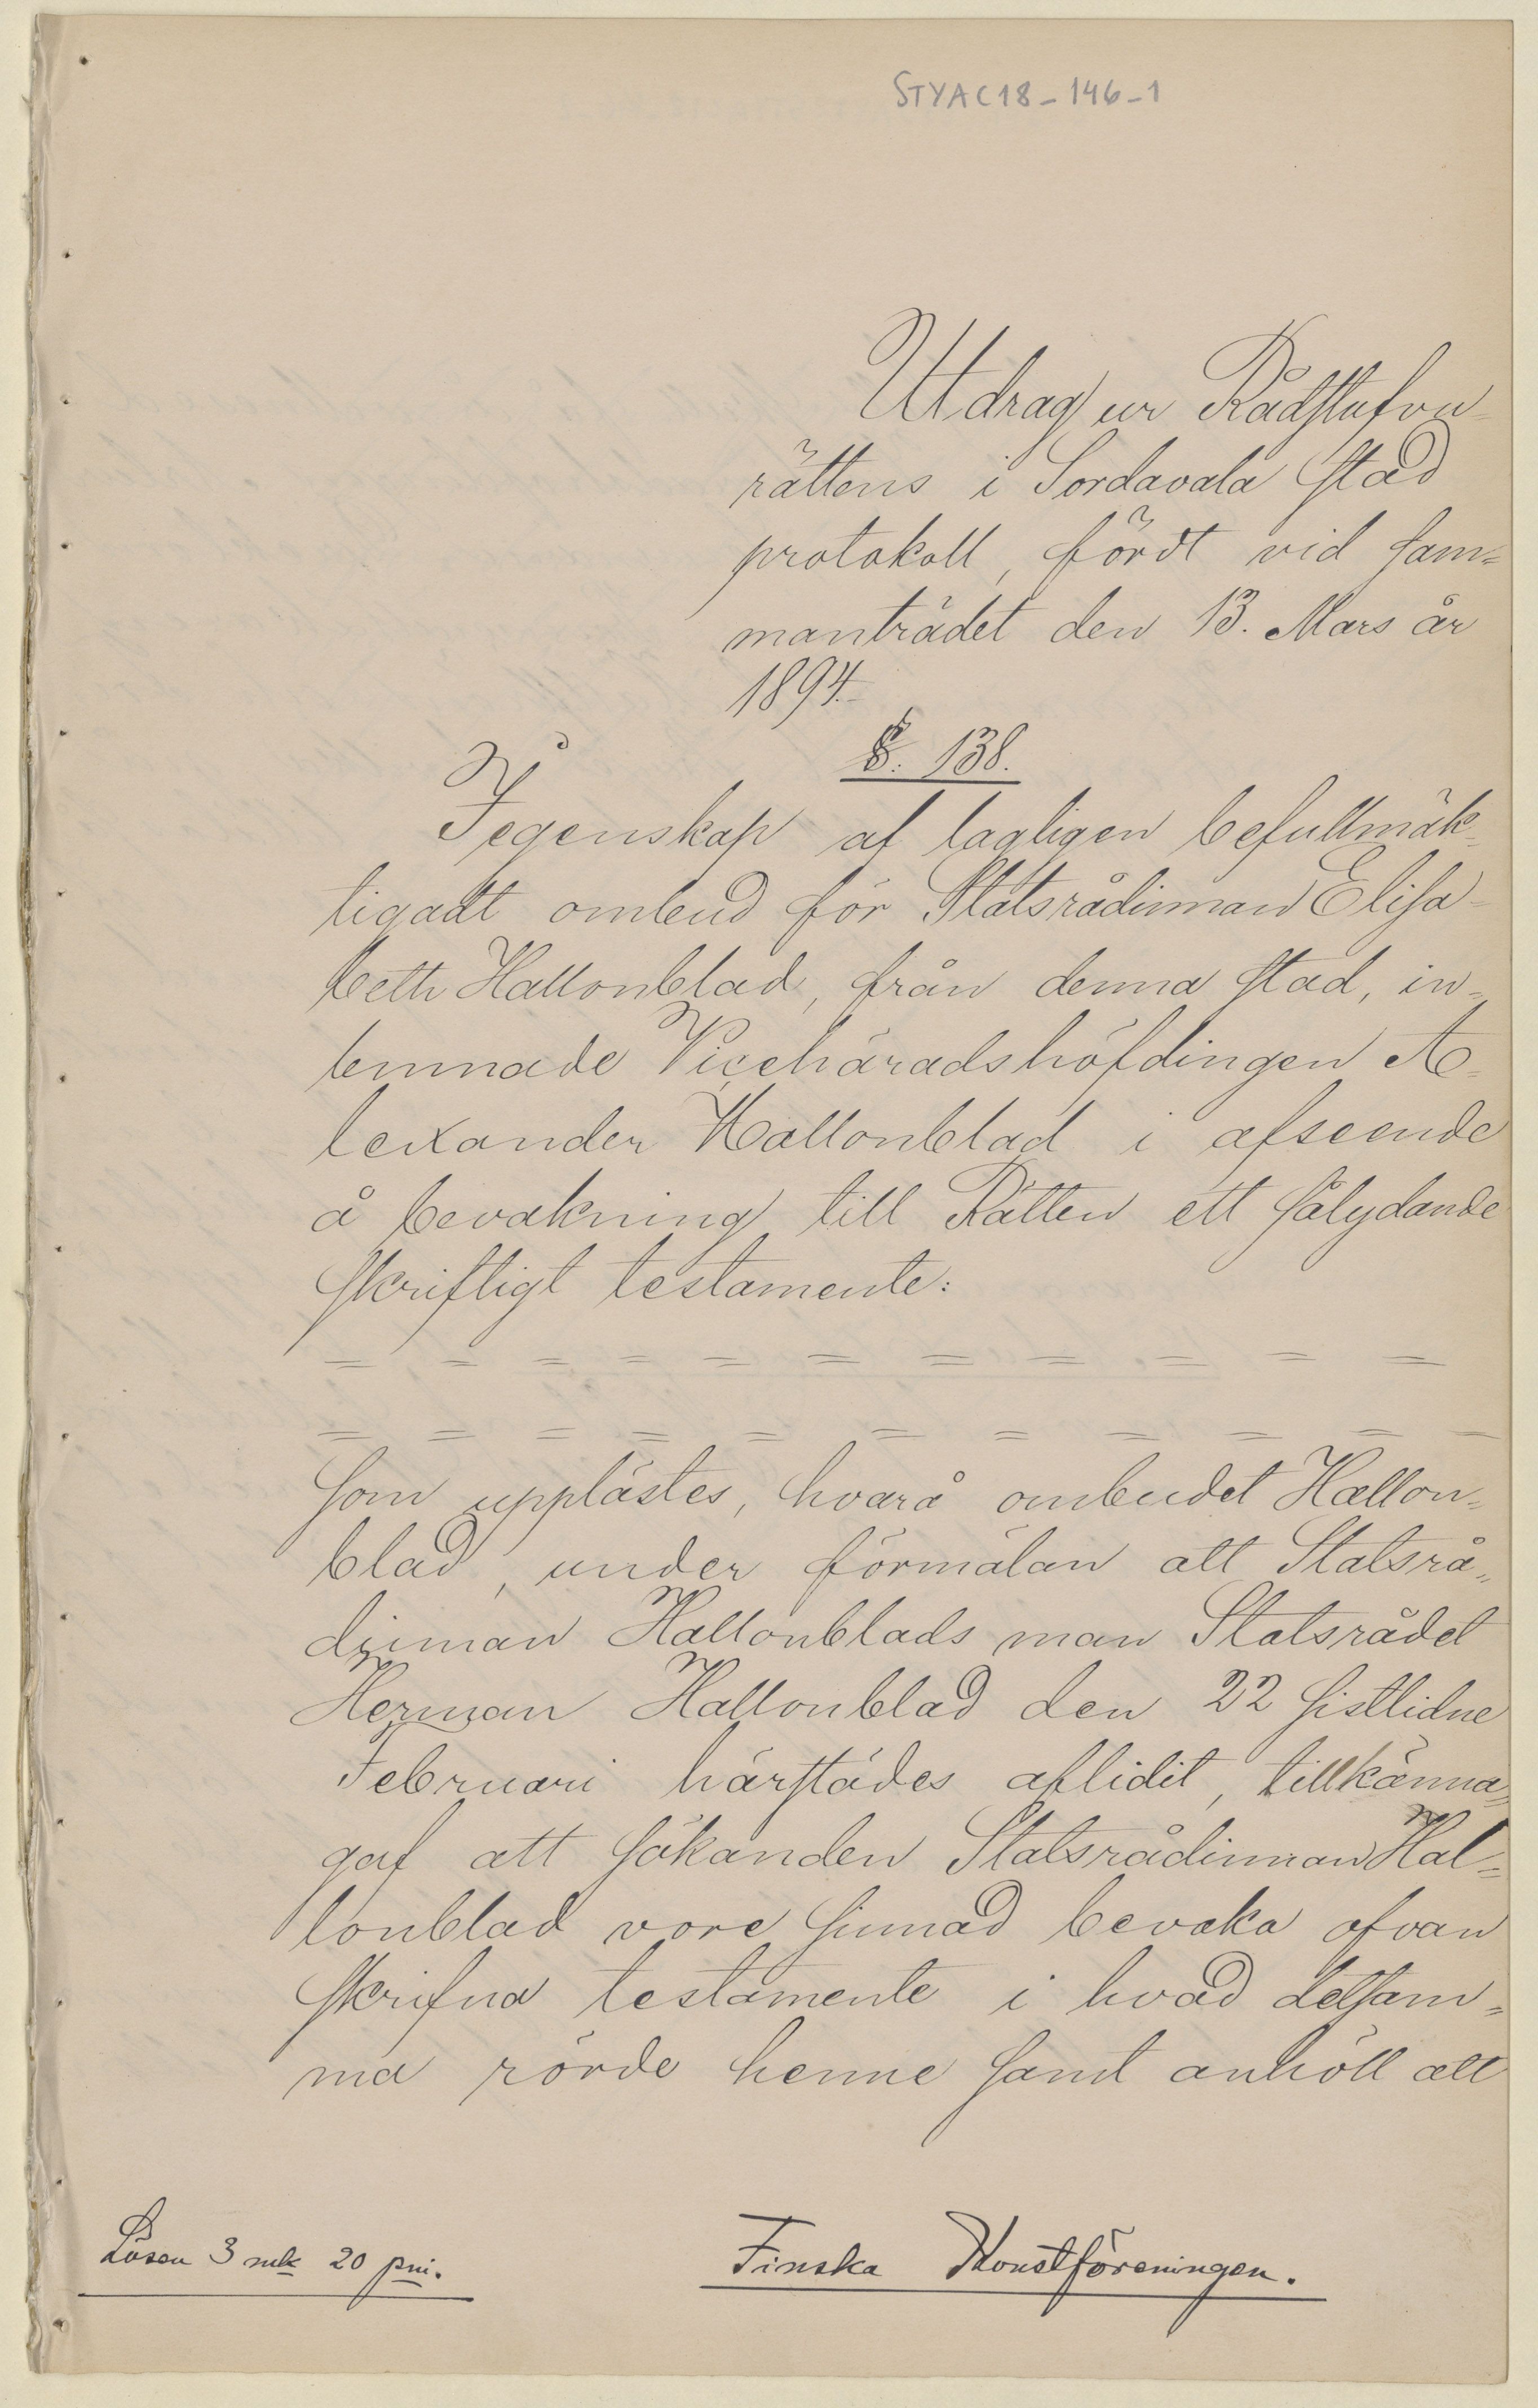 STYAC18-146-1
Utdrag ur Rådstufvu-
rättens i Sordavala stad
protokoll, fördt vid sam=
manträdet den 13. Mars år
1894.
§. 138.
I egenskap af lagligen befullmäk-
tigadt ombud för Statsrådinnan Elisa-
beth Hallonblad, från denna stad, in=
lemnade Vicehäradshöfdingen A=
lexander Hallonblad i afseende
å bevakning till Rätten ett sålydande
skriftligt testamente:
= = = = = = = = = = =
= = = = = = = = = = =
som upplästes, hvarå ombudet Hallon=
blad, under förmälan att Statsrå=
dinnan Hallonblads man Statsrådet
Herman Hallonblad den 22 sistlidne
Februari härstädes aflidit, tillkänna=
gaf att sökanden Statsrådinnan Hal=
lonblad vore sinnad bevaka ofvan
skrifna testamente i hvad detsam=
ma rörde henne samt anhöll att
Lösen 3 mk 20 pni.
Finska Konstföreningen.